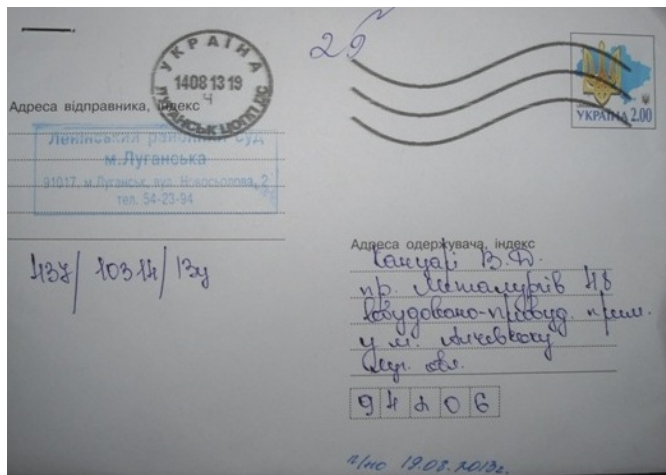 УКРАЇНА
1408 13 19
Ч
ЛУГАНСЬК ЦОПП ДС
УКРАЇНА 2.00
Адреса відправника, індекс
Ленінський районний суд
м.Луганська
91017, м.Луганськ, вул. Новосьолова, 2
тел. 54-23-94
437/10314/13ц
Адреса одержувача, індекс
В. Д.
пр. Металургів 48
вбудовано-прибуд. прим.
у м. Алчевську
Луг. обл.
94206
п/но 19.08.2013г.